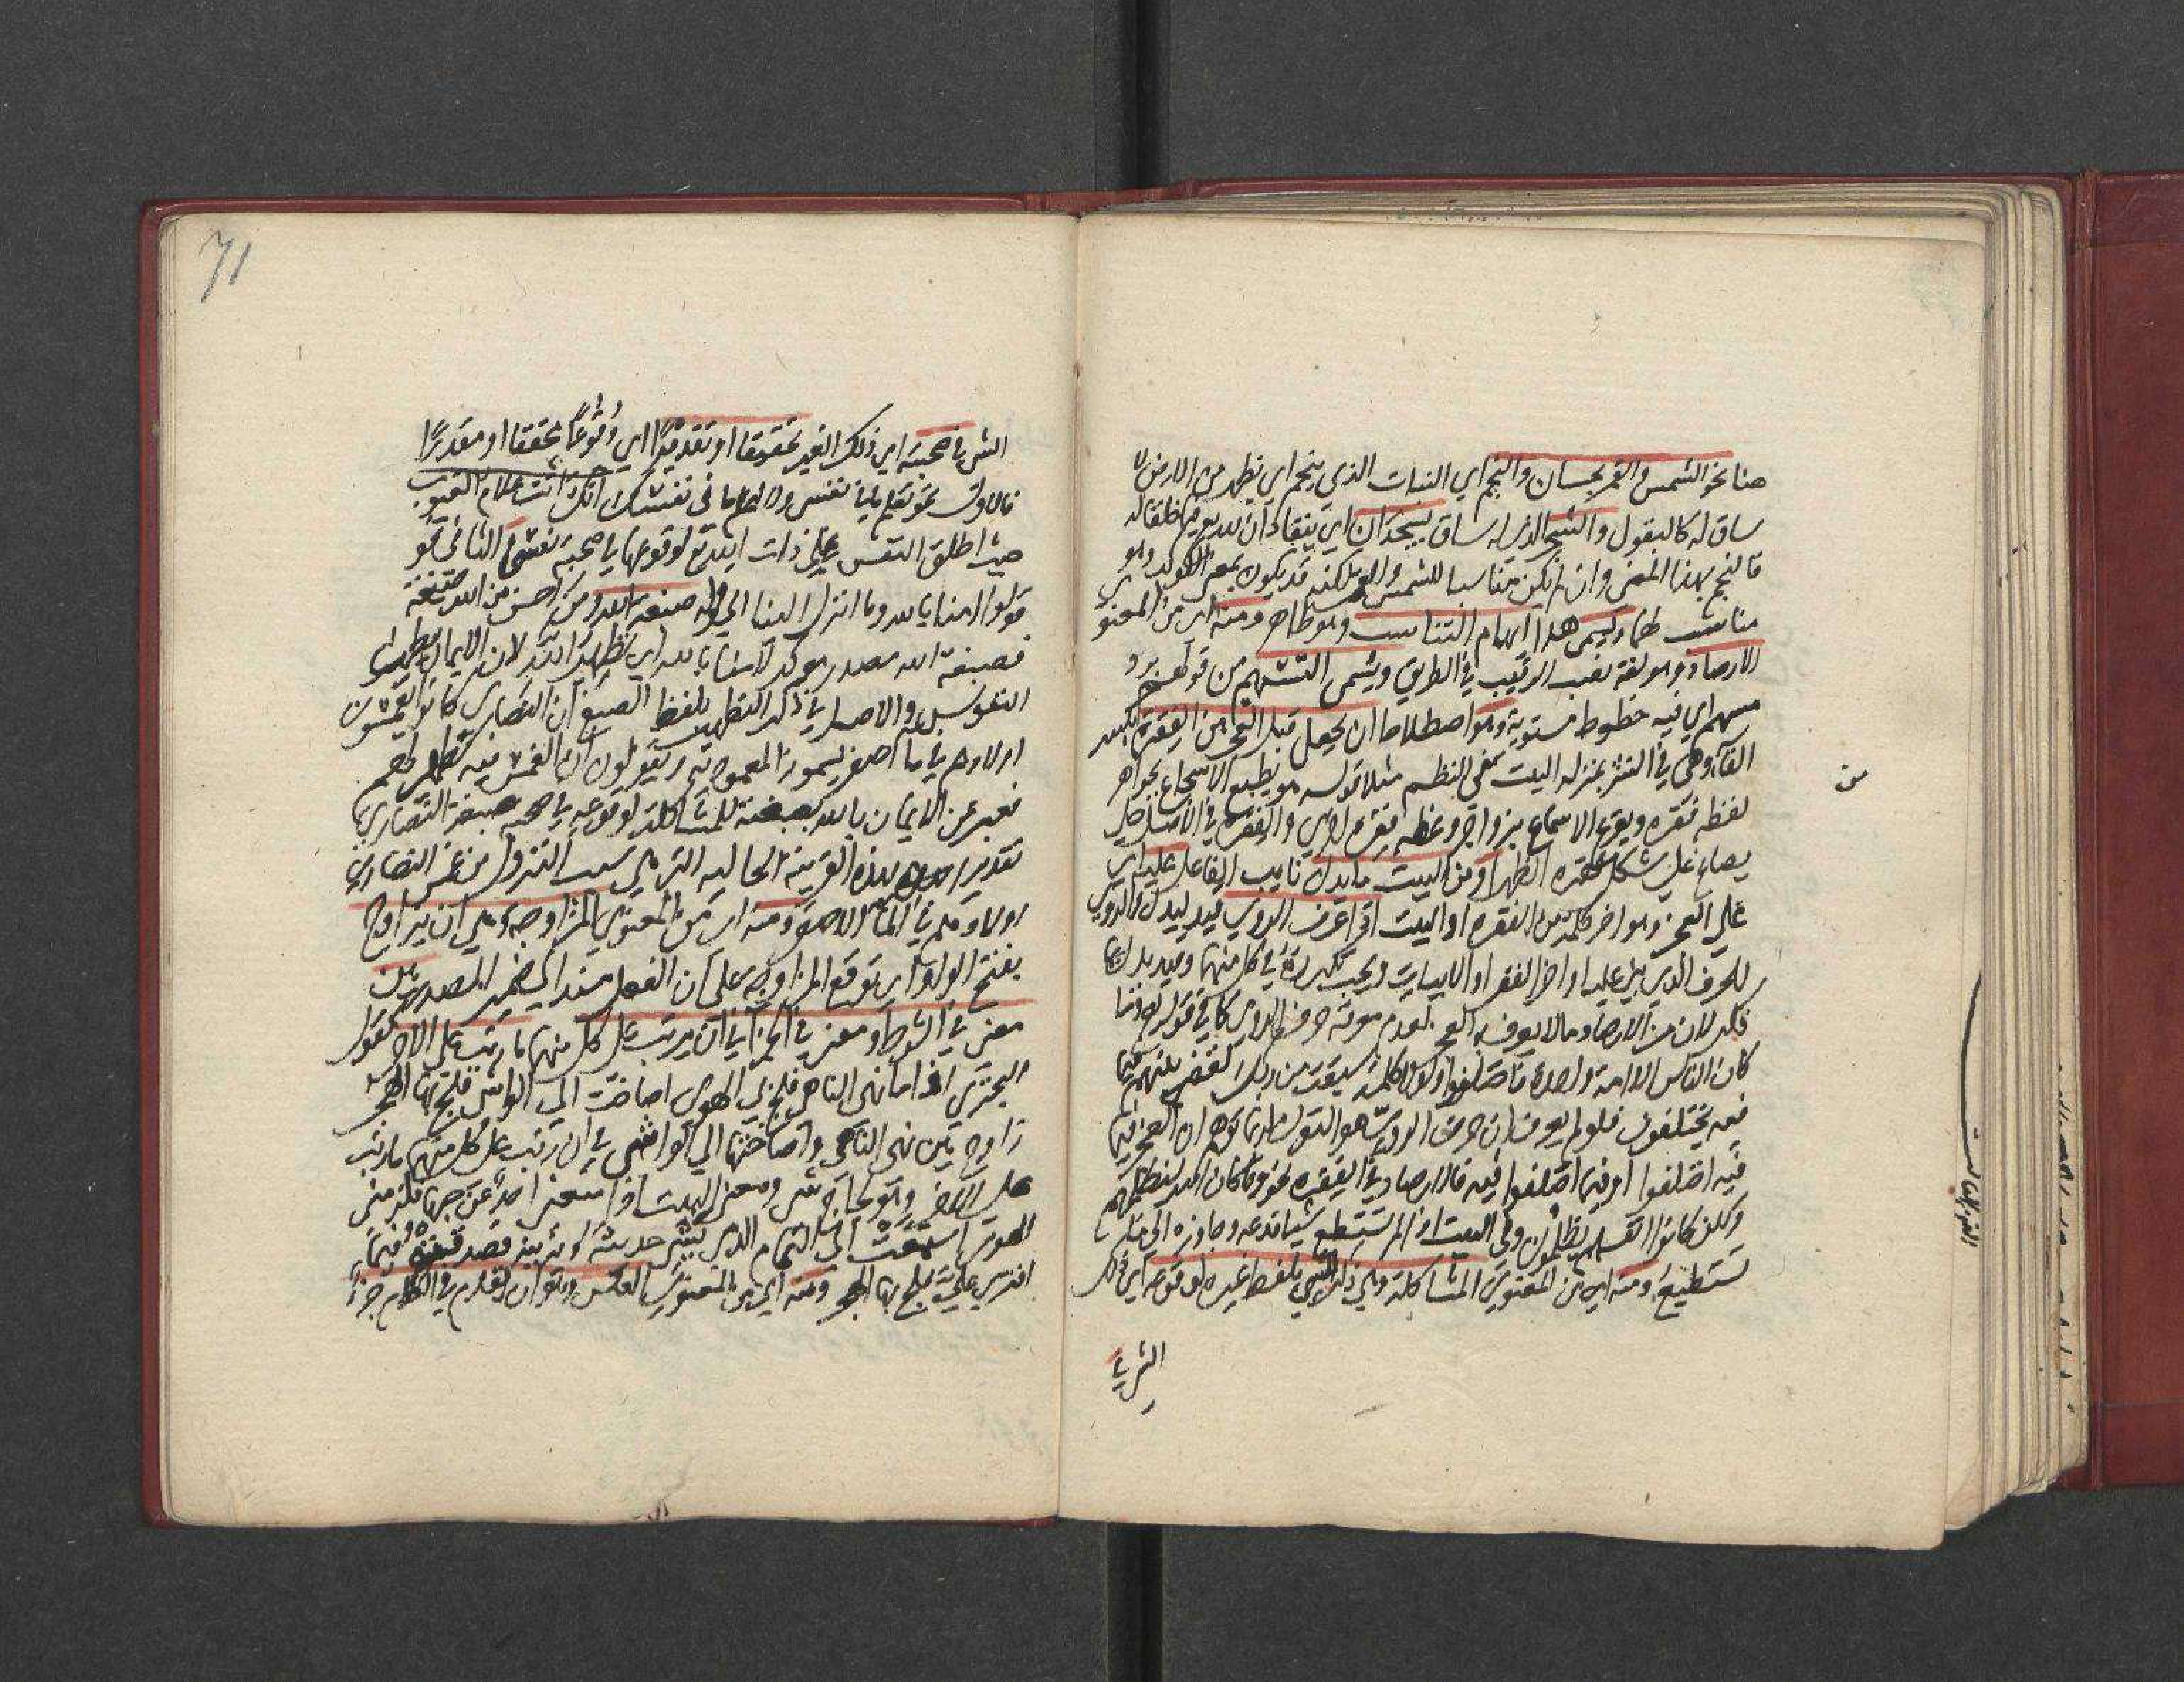 هنا نحو الشمس والقمر بحسبان والنجم اي النبات الذي ينجم اي يظهر من الارض لا
ساق له كالبقول والشجر الذي له ساق يسجدان اي ينقادان لله تع فيما خلقا له
فالنجم بهذا المعنى وان لم يكن متناسبا للشمس والقمر لكنه قد يكون بمعنى الكوكب وهو
مناسب لهما ويسمى هذا ايهام التناسب وهو ظاهر ومنه اي من المعنوي
الارصاد وهو لغة نصب الرقيب في الطريق ويسمى التسهيم من قولهم برد
مسهم اي فيه خطوط مستوية وهو اصطلاحا ان يجعل قبل العجز من الفقرة بكسر
الفاء وهي في النثر بمنزلة البيت في النظم مثلا قوله هو يطبع الاسجاع بجواهر
لفظه فقرة ويقرع الاسماع بزواجر وعظه فقرة اخرى والفقرة في الاصل حلي
يصاغ على شكل فقرة الظهر او من البيت ما يدل نايب الفاعل عليه اي
على العجز وهو اخر كلمة من الفقرة او البيت اذا عرف الروي قيد ليدل والروي
الحرف الذي يبنى عليه اواخر الفقر او الابيات ويجب تكراره في كل منهما وقيد بذلك
لان من الارصاد ما لا يعرف به العجز لعدم معرفة حرف الروي كما في قوله تع وما
كان الناس الا امة واحدة فاختلفوا ولولا كلمة سبقت من ربك لقضي بينهم فيما
فيه يختلفون فلو لم يعرف ان حرف الروي هو النون لربما توهم ان العجز فيما
فيه اختلفوا او فيما اختلفوا فيه فالارصاد في الفقرة نحو وما كان الله ليظلمهم
ولكن كانوا انفسهم يظلمون وفي البيت اذا لم تستطع شيئا فدعه وجاوزه الى ما
تستطيع ومنه اي من المعنوي المشاكلة وهي ذكر الشي بلفظ غيره لوقوعه اي ذلك
الشي في
من
71
الشي في صحبته اي ذلك الغير تحقيقا او تقديرا اي وقوعا محققا او مقدرا
فالاول نحو تعلم ما في نفسي ولا اعلم ما في نفسك انك انت علام الغيوب
حيث اطلق النفس على ذات الله تع لوقوعها في صحبة نفسي والثاني نحو
قولوا امنا بالله وما انزل الينا الى قوله صبغة الله ومن احسن من الله صبغة
فصبغة الله مصدر موكد لامنا بالله اي تطهير الله لان الايمان يطهر
النفوس والاصل في ذكر التطهير بلفظ الصبغ ان النصارى كانوا يغمسون
اولادهم في ما اصفر يسمونه المعمودية ويقولون ان الغمس فيه تطهير لهم
فعبر عن الايمان بالله بصبغة للمشاكلة لوقوعه في صحبة صبغة النصارى
تقديرا بهذه القرينة الحالية التي هي سبب النزول من غمس النصارى
اولادهم في الماء الاصفر ومنه اي من المعنوي المزاوجة وهي ان يزاوج
بفتح الواو اي توقع المزاوجة على ان الفعل مسند الى ضمير المصدر بين
معنى في الشرط ومعنى في الجزا في ان يرتب على كل منهما ما رتب على الاخر كقول
البحتري اذا ما نهى الناهي فلج بي الهوى اصاخت الى الواشي فلج بها الهجر
زاوج بين نهي الناهي واصاختها الى الواشي في ان رتب على كل منهما ما رتب
على الاخر وهو لجاج شي ومعنى البيت اذا منعني احد عن حبها فلزمني
الهوى استمعت الى النمام الذي يشي حديثه
افترى علي فلج بها الهجر ومنه اي من المعنوي العكس وهو ان يقدم في الكلام جزأ